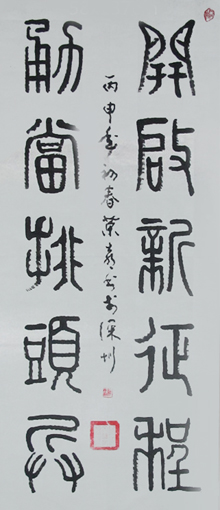 開啟新征程
勇當排頭兵
丙申年初春葉
於深圳